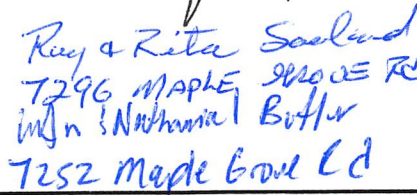 Ray & Rita Sooland
7296 MAPLE GROVE Rd
Nathanial Butler
7252 Maple Grove Rd